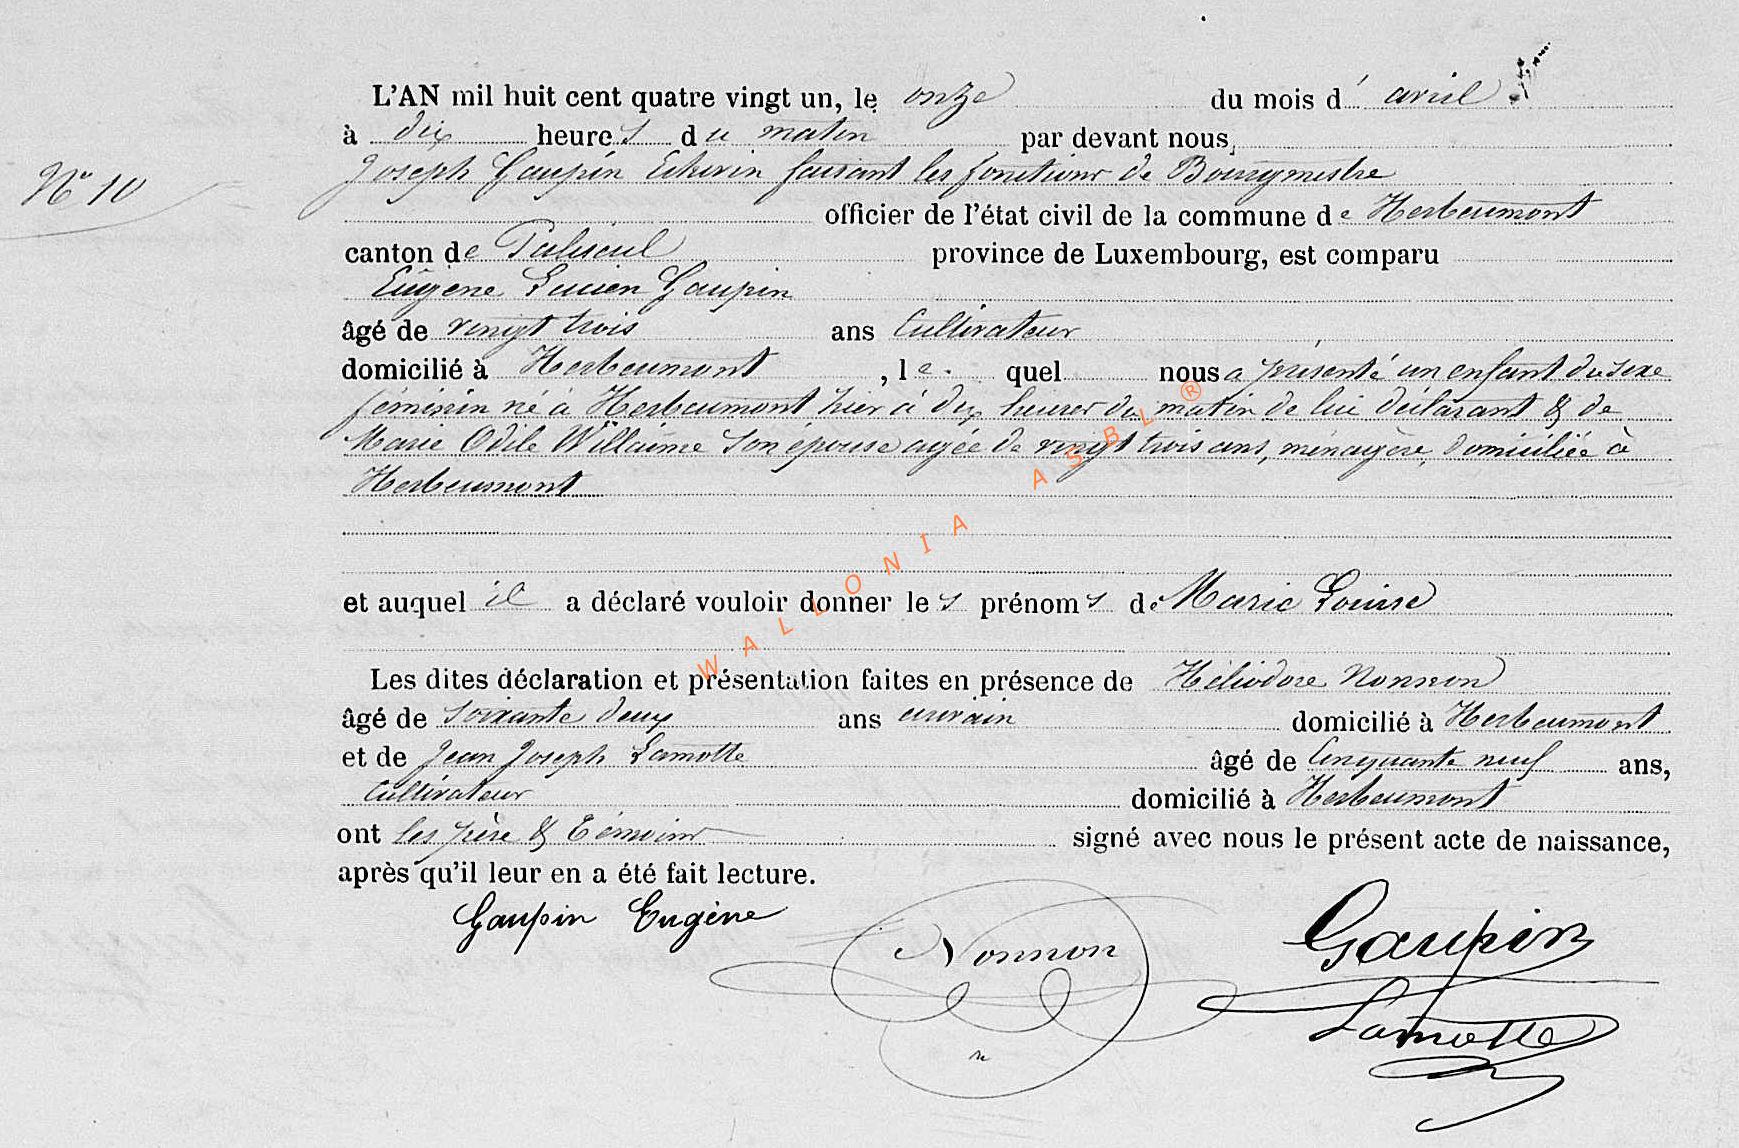 L'AN mil huit cent quatre vingt un, le onze du mois d' avril
à dix heures du matin par devant nous,
Nº 10
Joseph Gaupin Echevin faisant les fonctions de Bourgmestre
officier de l'état civil de la commune de Herbeumont
canton de Paliseul province de Luxembourg, est comparu
Eugène Lucien Gaupin
âgé de vingt trois ans Cultivateur
domicilié à Herbeumont, le quel nous a présenté un enfant du sexe
féminin né à Herbeumont hier à dix heures du matin de lui déclarant & de
Marie Odile Willaime son épouse agée de vingt trois ans, ménagère, domiciliée à
Herbeumont
et auquel il a déclaré vouloir donner les prénoms de Marie Louise
Les dites déclaration et présentation faites en présence de Héliodore Nonnon
âgé de soixante deux ans domicilié à Herbeumont
et de Jean Joseph Lamotte âgé de Cinquante neuf ans,
Cultivateur domicilié à Herbeumont
ont les père & témoins signé avec nous le présent acte de naissance,
après qu'il leur en a été fait lecture.
Gaupin Eugène
Nonnon
Gaupin
Lamotte
WALLONIA ASBL ®